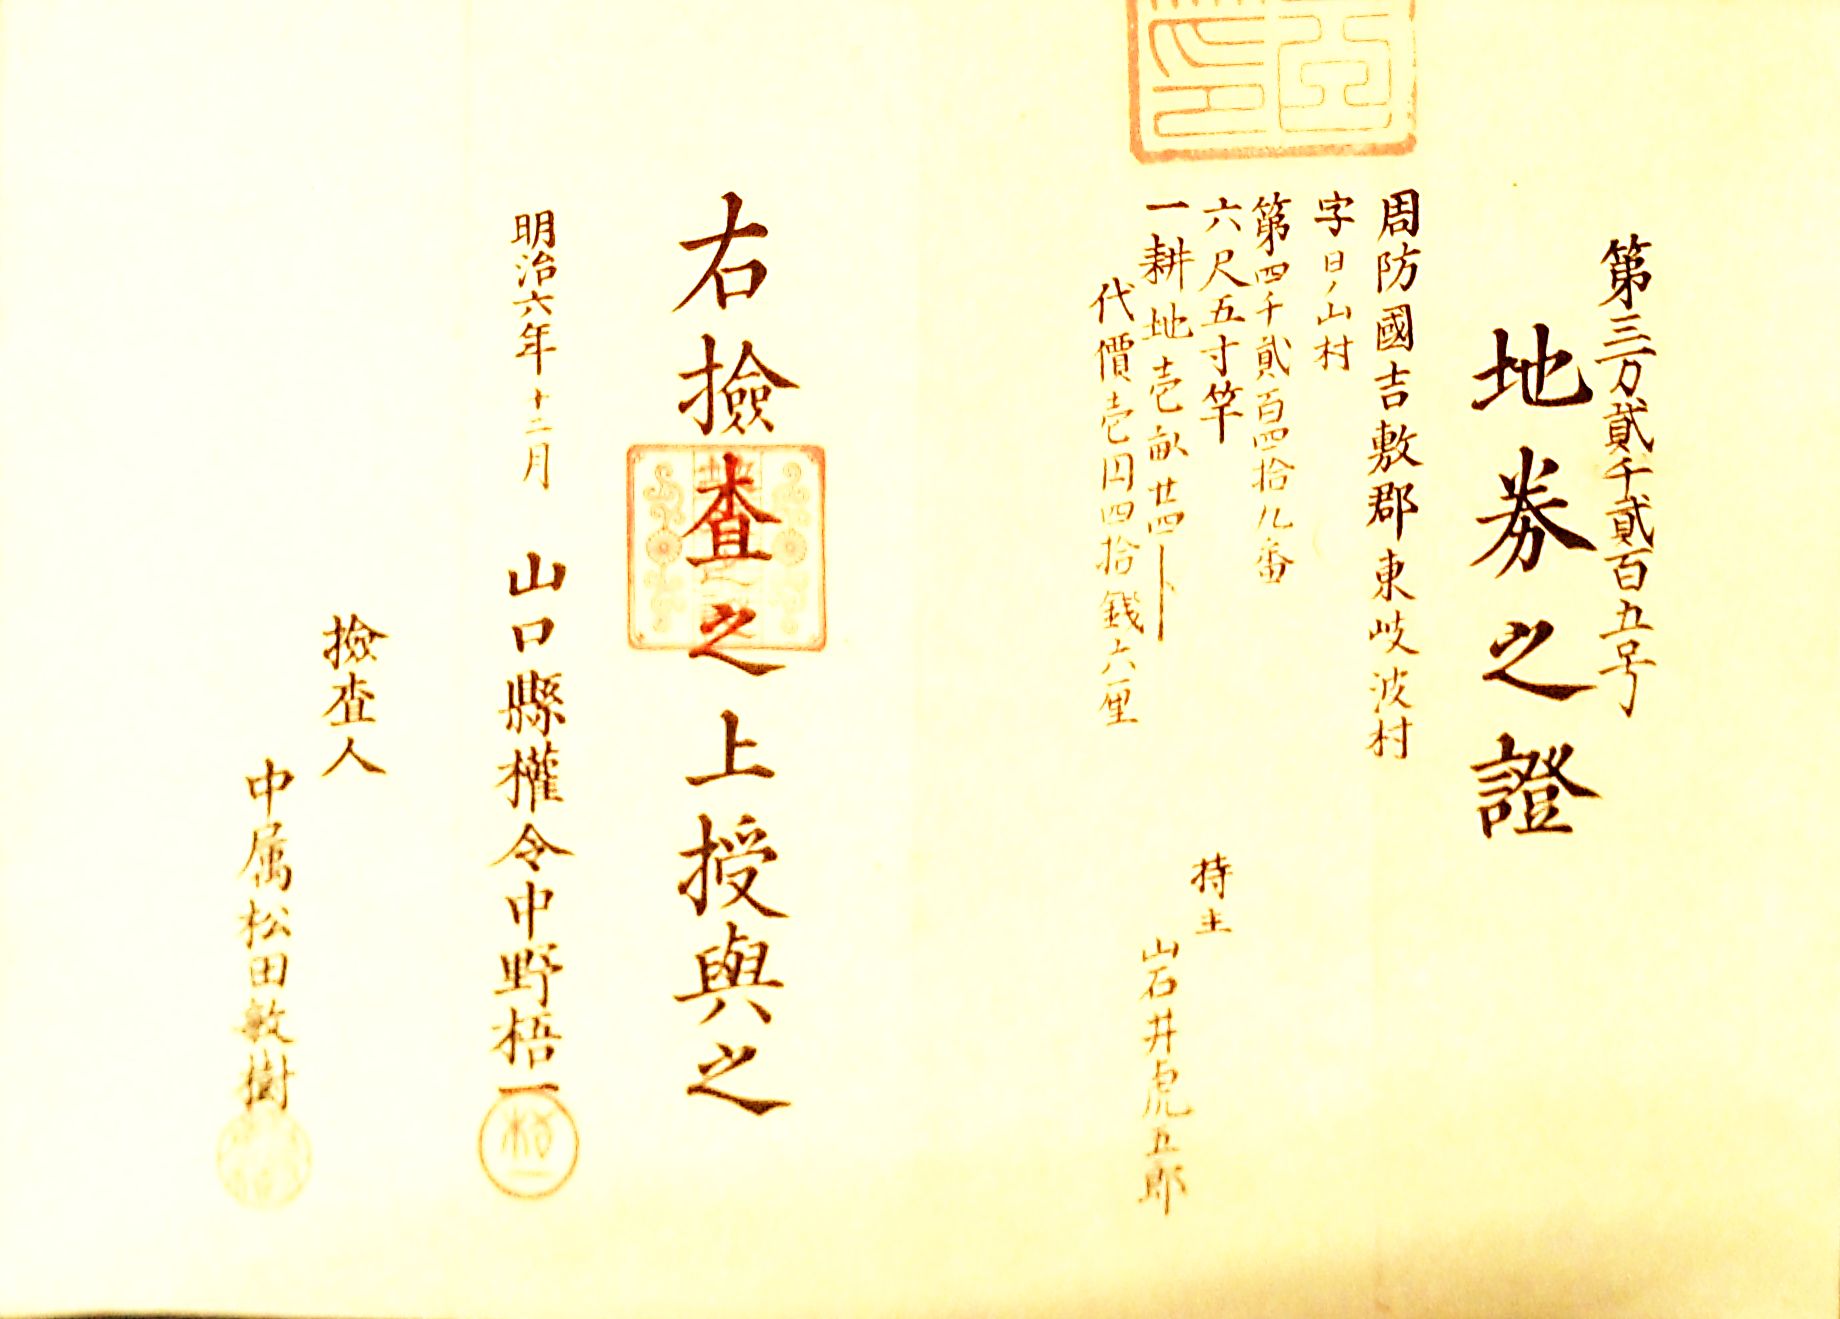 第三万貳千貳百五号
地券之證
周防國吉敷郡東岐波村
字日ノ山村
第四千貳百四拾九番
六尺五寸竿
一耕地壱畝廿四卜
代價壱円四拾錢六厘
持主
山石井虎五郎
右撿査之上授與之
明治六年十二月 山口縣權令中野梧一
撿査人
中属松田敏樹